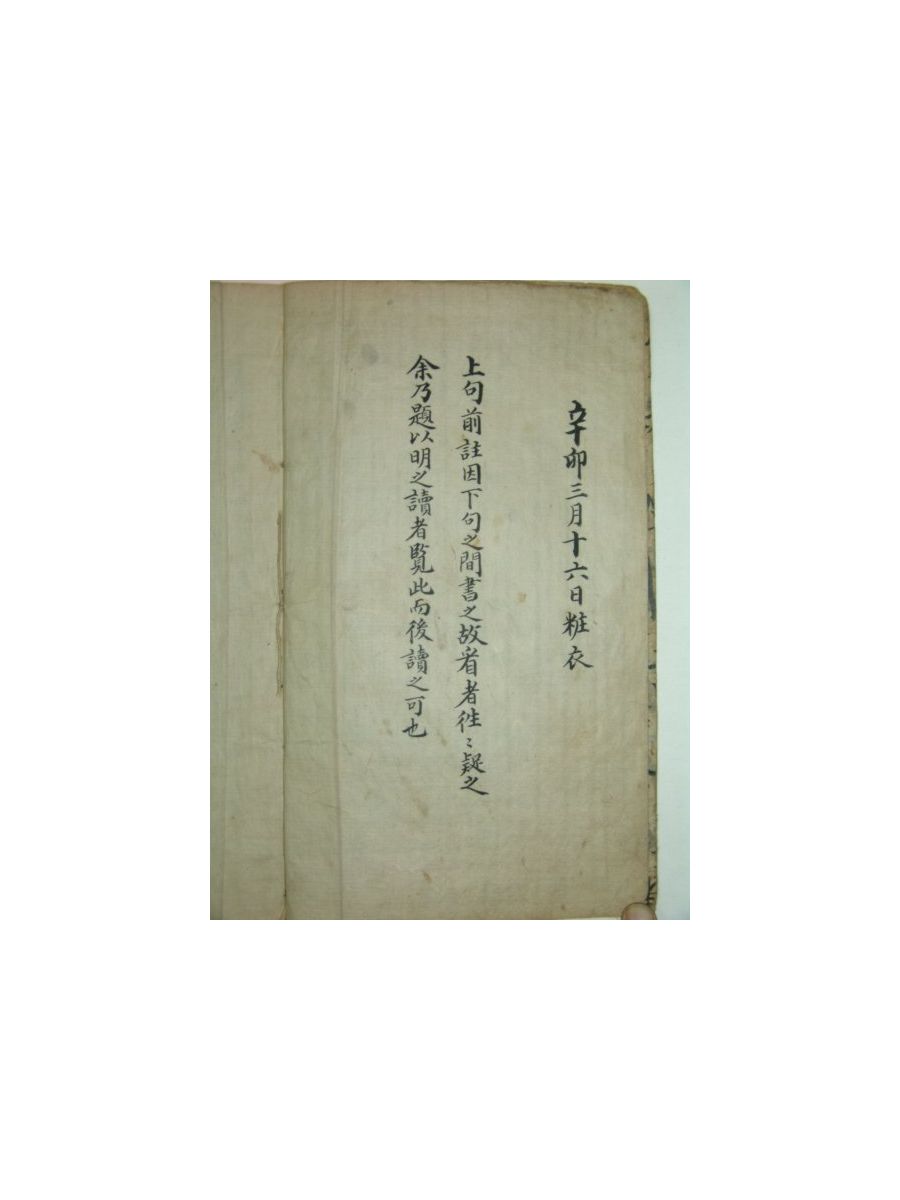 辛卯三月十六日粧衣
上句前註因下句之間書之故看者徃〻疑之
余乃題以明之讀者覽此而後讀之可也